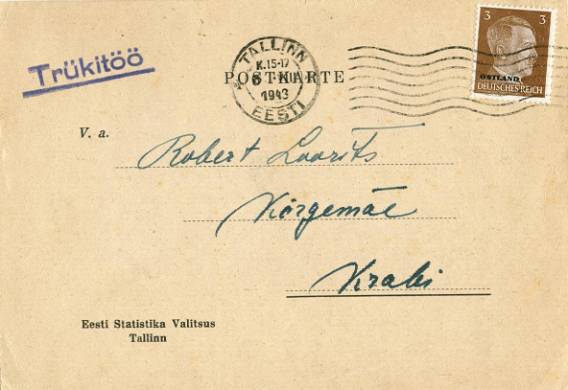 3 3
OSTLAND
DEUTSCHES REICH
TALLINN
K.15-17
1943
EESTI
Trükitöö
POSTKARTE
V. a.
Robert Laarits
Kõrgemäe
Krabi
Eesti Statistika Valitsus
Tallinn